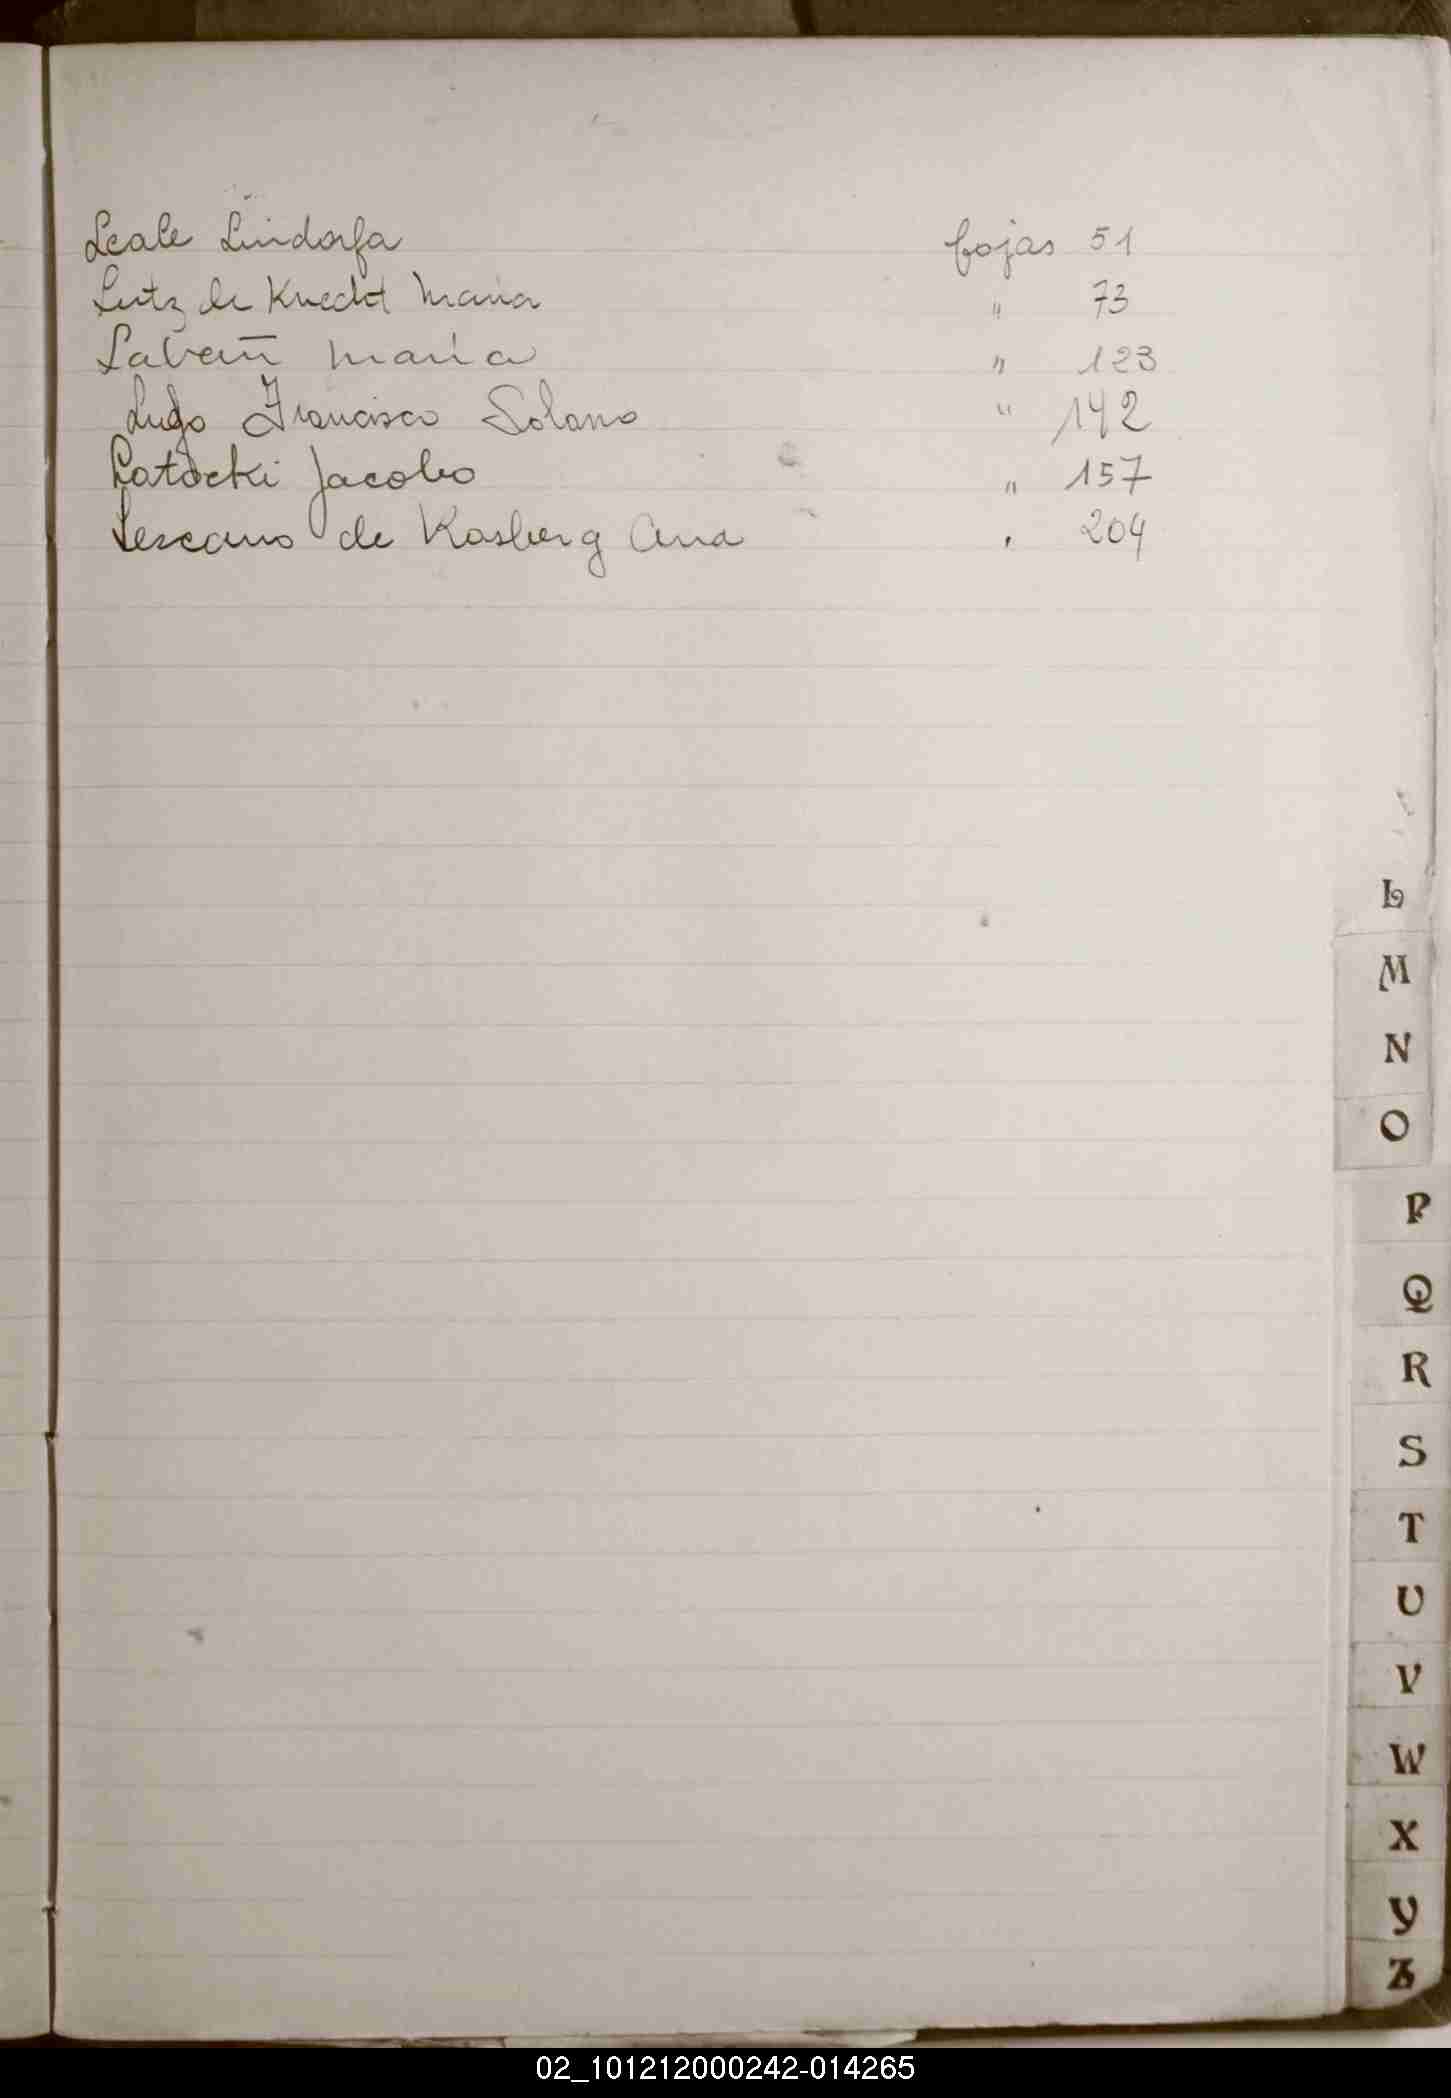 Leale Lindorfa fojas 51
Lutz de Knecht Maria " 73
Maria " 123
Lugo Francisco Solano " 142
Latocki Jacobo " 157
Lescano de Kosberg Ana " 204
L
M
N
O
P
Q
R
S
T
U
V
W
X
Y
Z
02_101212000242-014265